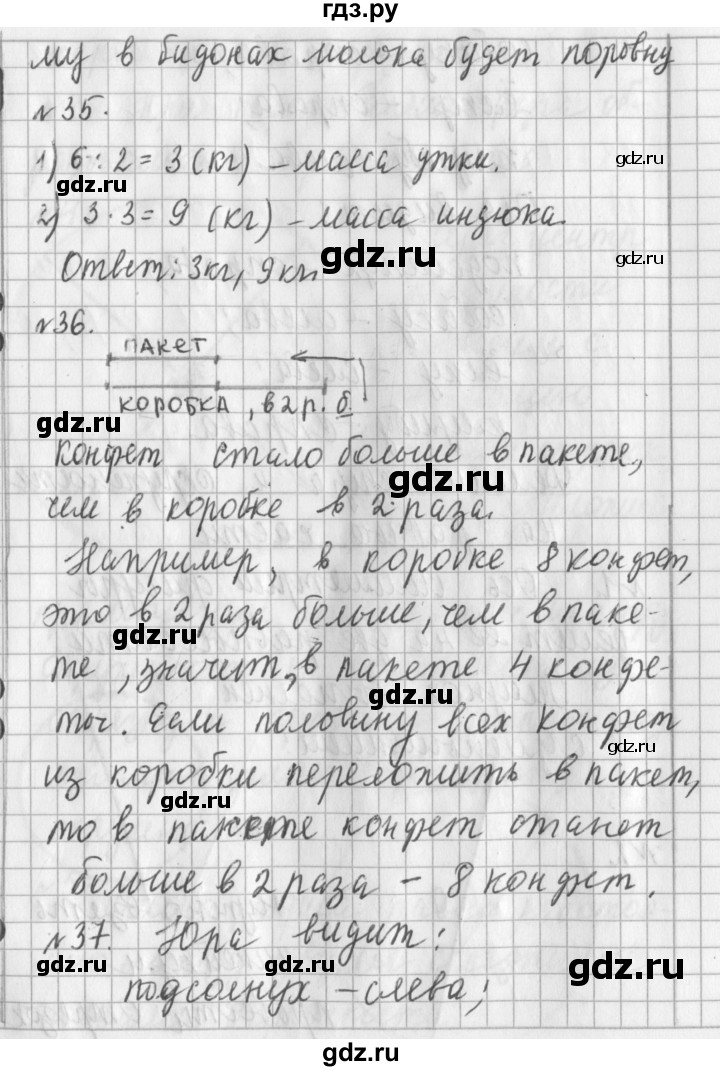 гдз.ру
му в бидонах молока будет поровну
№35.
1) 6 : 2 = 3 (кг) – масса утки.
gdz.ru
gdz.ru
2) 3 · 3 = 9 (кг) – масса индюка.
gdz.ru
gdz.ru
Ответ: 3кг, 9кг.
№36.
ПАКЕТ
gdz.ru
КОРОБКА, в 2 р. б
gdz.ru
Конфет стало больше в пакете,
gdz.ru
чем в коробке в 2 раза.
Например, в коробке 8 конфет,
это в 2 раза больше, чем в паке-
gdz.ru
те, значит, в пакете 4 конфе-
gdz.ru
ты. Если половину всех конфет
gdz.ru
из коробки переложить в пакет,
gdz.ru
то в пакете конфет станет
больше в 2 раза – 8 конфет.
№37. Юра видит:
gdz.ru
gdz.ru
gdz.ru
подсолнух – слева;
gdz.ru